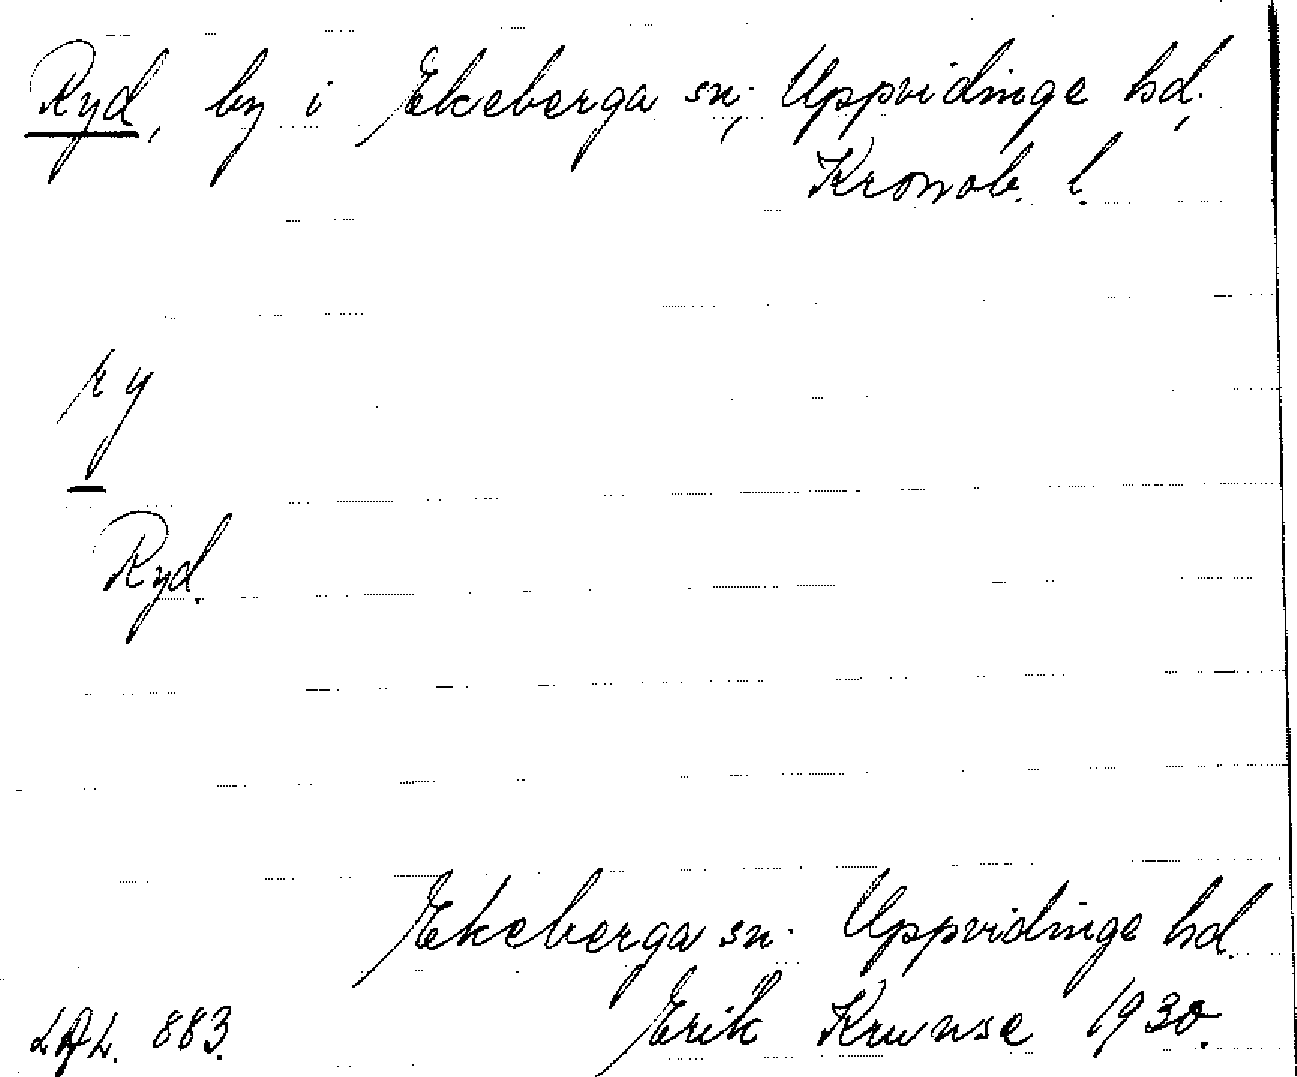 Ryd, by i Ekeberga sn., Uppvidinge hd.,
Kronob. l.
ry
Ryd.
Ekeberga sn. Uppvidinge hd.
LAL. 883. Erik Krunse 1930.